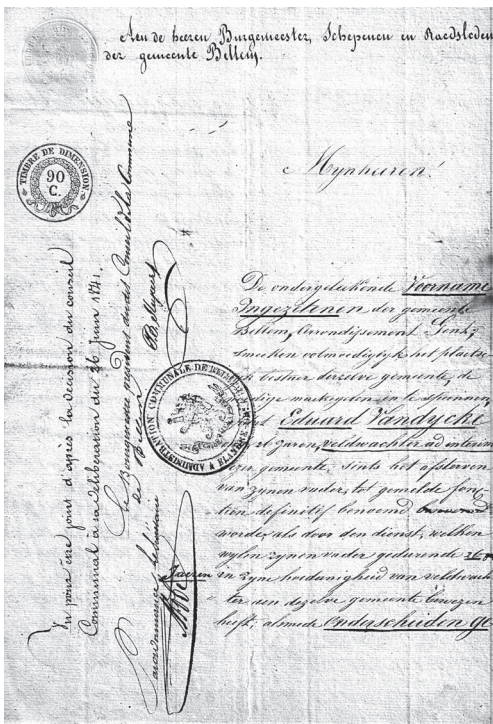 Aen de heeren Burgemeester, Schepenen en Raedsleden
der gemeente Bellem.
TIMBRE DE DIMENSION
90
C.
Mynheeren!
De ondergeteekende Voorname
Ingezetenen der gemeente
Bellem, Arrondissement Gent,
smeeken ootmoediglyk het plaetse
bestuer derzelve gemeente, de
noodige maetregelen in te spannen,
Eduard Vandycke
jaren, veldwachter ad interim
gemeente, sints het afsterven
van zynen vader, tot gemelde func
tien definitief benoemd
worde, als door den dienst, welken
wylen zynen vader gedurende 36
jaeren in zyne hoedanigheid van veldwach
ter aen dezelve gemeente bewezen
heeft, alsmede Onderscheiden ge
Vu pour être joint d'après la décision du conseil
Communal à sa délibération du 26 juin 1841.
Le Bourgmestre président dudit Conseil de la Commune
de Bellem
Par ordonnance le Secrétaire
ADMINISTRATION COMMUNALE DE BELLEM